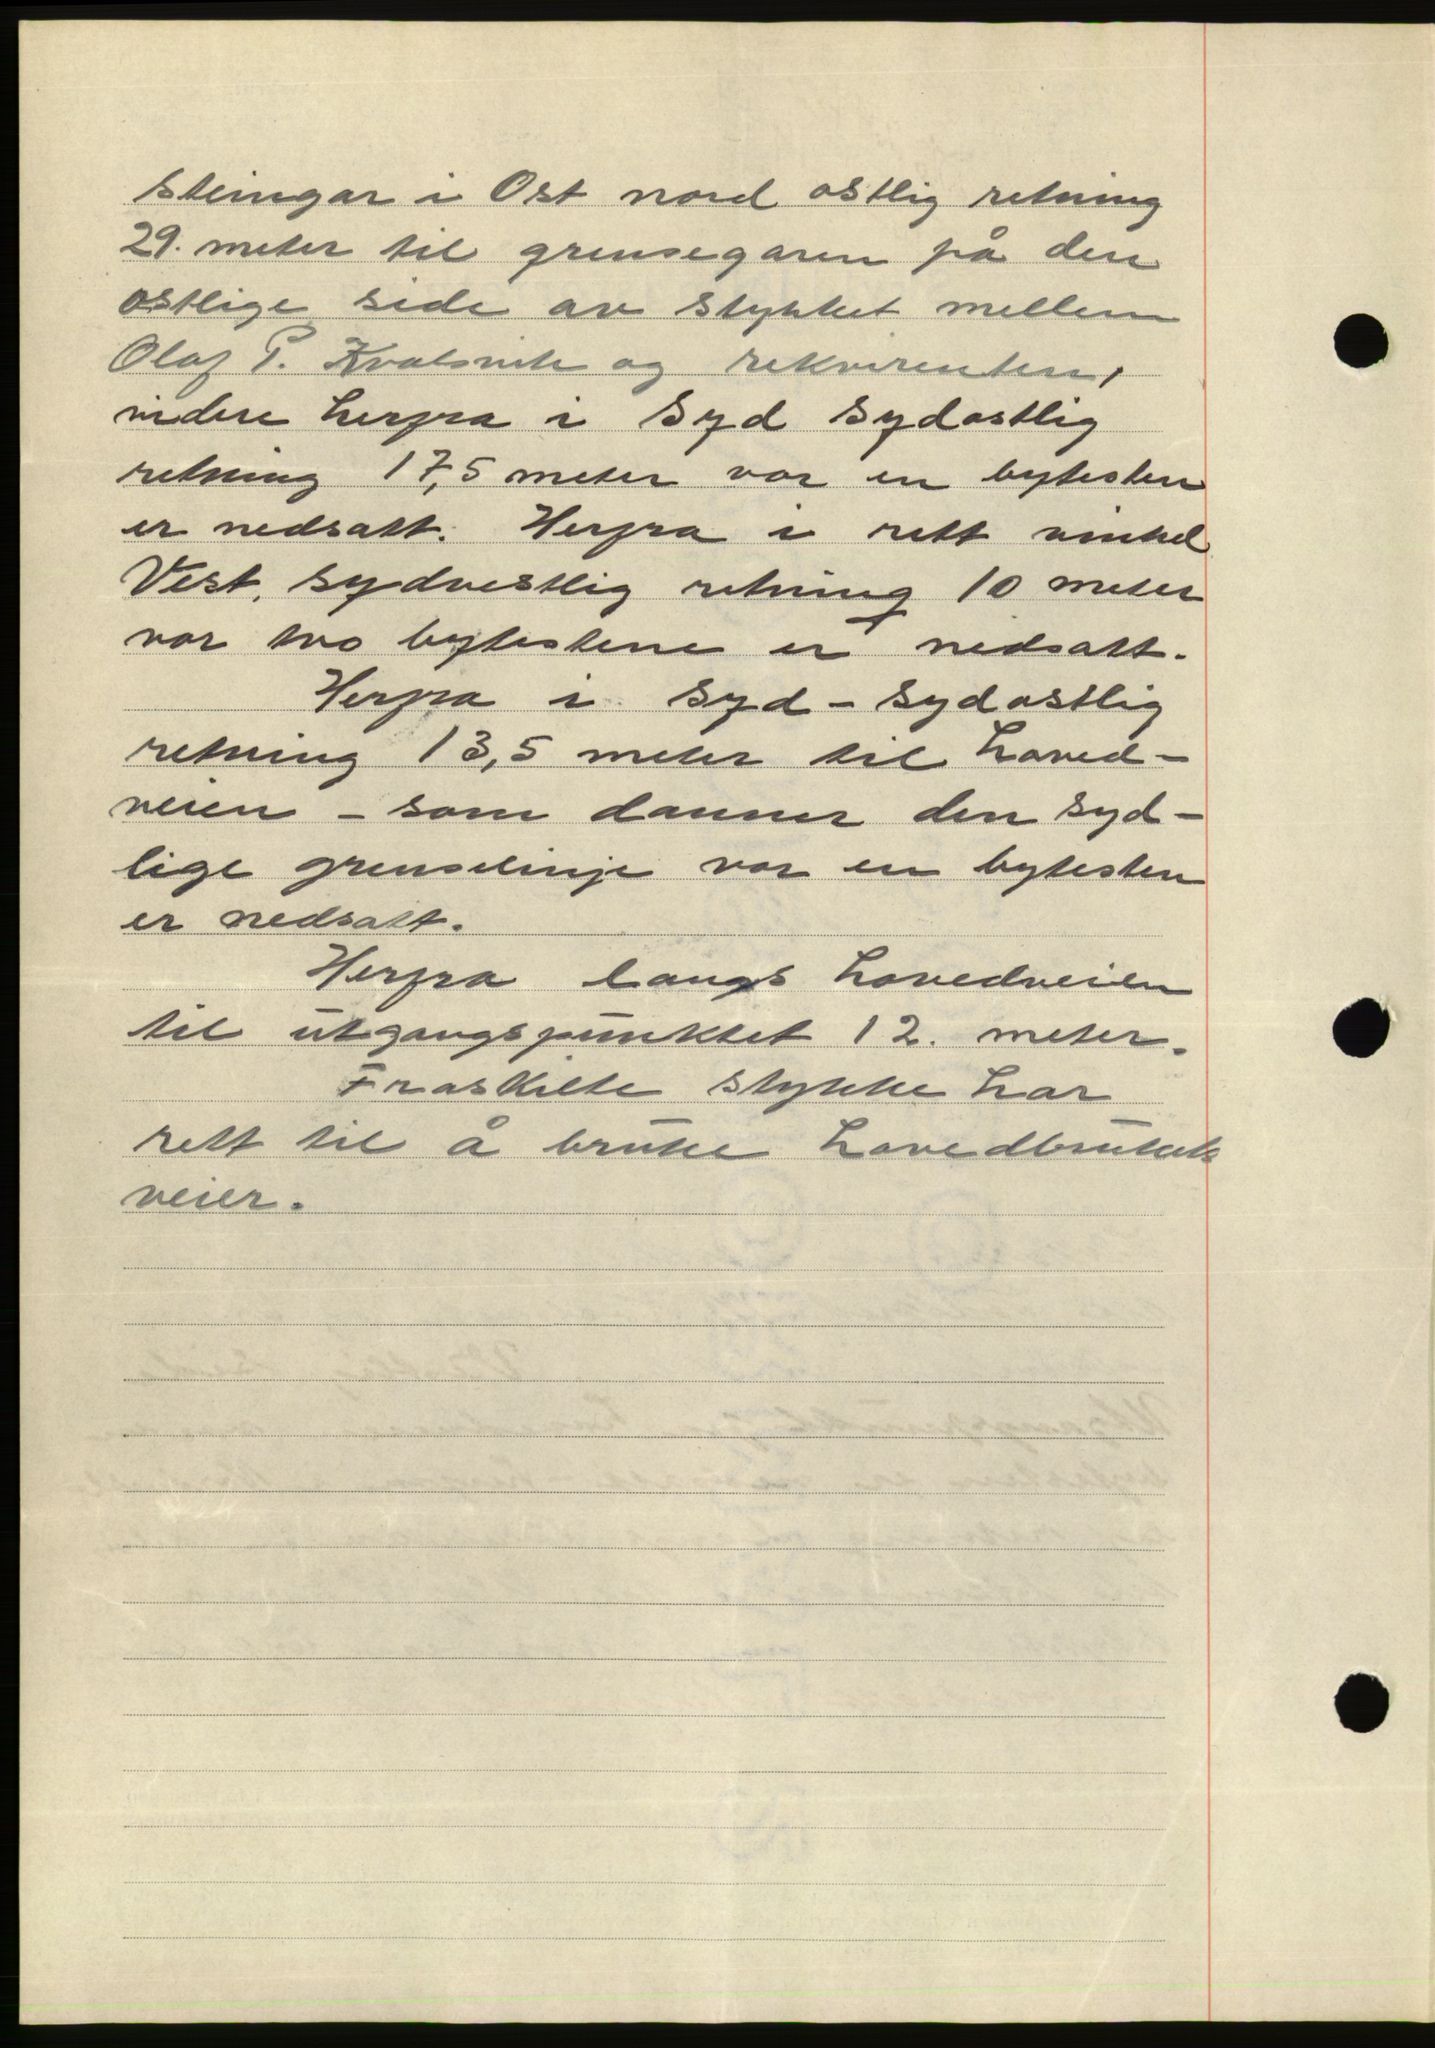 steingar i Ost nord ostlig retning
29. meter til grensegaren på den
ostlige side av stykket mellem
Olaf P. Kvalsvik og rekvirenten,
videre herfra i Syd Sydostlig
retning 17,5 meter vor en bytesten
er nedsatt. Herfra i rett vinkel
Vest, sydvestlig retning 10 meter
vor tvo bytestene er nedsatt.
Herfra i Syd - Sydostlig
retning 13,5 meter til hoved-
veien - som danner den syd-
lige grenselinje vor en bytesten
er nedsatt.
Herfra langs hovedveien
til utgangspunktet 12. meter.
Fraskilte stykke har
rett til å bruke hovedbrukets
veier.